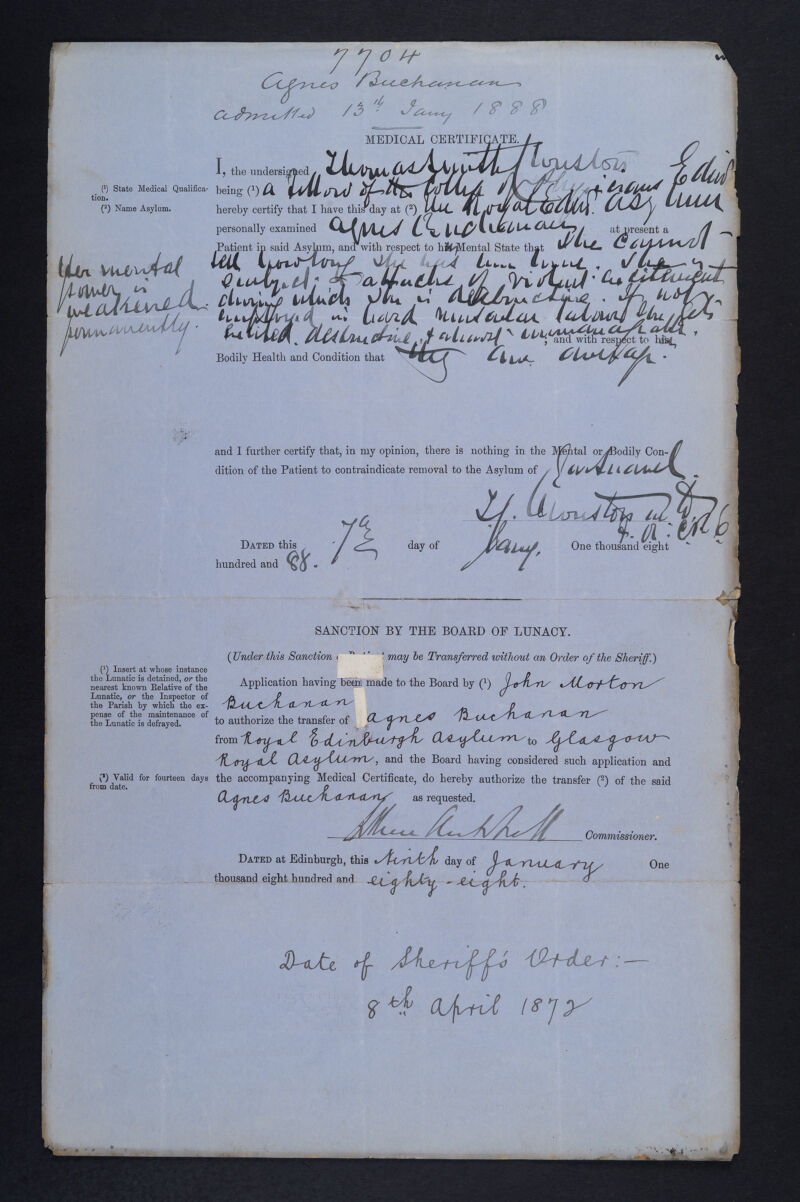 7704
Agnes Buchanan
admitted 13th Jany 1888
MEDICAL CERTIFICATE.
I, the undersigned Thomas Smith Clouston
(1) State Medical Qualification.
(2) Name Asylum.
being (1) a Fellow of the College of Physicians Edinr
hereby certify that I have this day at (2) the Royal Edinr. Asylum
personally examined Agnes Buchanan at present a
Patient in said Asylum, and with respect to his Mental State that She cannot
tell how long she has been here. She is
subject to attacks of violent excitement
during which she is destructive. If not
employed in hard muscular labour she gets
excited, destructive, & almost unmanageable.
Her mental
power is
weakened
permanently.
; and with respect to his
Bodily Health and Condition that they are average.
and I further certify that, in my opinion, there is nothing in the Mental or Bodily Con-
dition of the Patient to contraindicate removal to the Asylum of Gartnavel.
T.S. Clouston M.D.
DATED this 7th day of Jany. One thousand eight
hundred and 88.
SANCTION BY THE BOARD OF LUNACY.
(Under this Sanction may be Transferred without an Order of the Sheriff.)
(1) Insert at whose instance
the Lunatic is detained, or the
nearest known Relative of the
Lunatic, or the Inspector of
the Parish by which the ex-
pense of the maintenance of
the Lunatic is defrayed.
Application having been made to the Board by (1) John Morton
Buchanan
to authorize the transfer of Agnes Buchanan
from Royal Edinburgh Asylum to Glasgow
Royal Asylum, and the Board having considered such application and
(2) Valid for fourteen days
from date.
the accompanying Medical Certificate, do hereby authorize the transfer (2) of the said
Agnes Buchanan as requested.
Commissioner.
DATED at Edinburgh, this Ninth day of January One
thousand eight hundred and eighty-eight.
Date of Sheriff's Order:—
8th April 1872